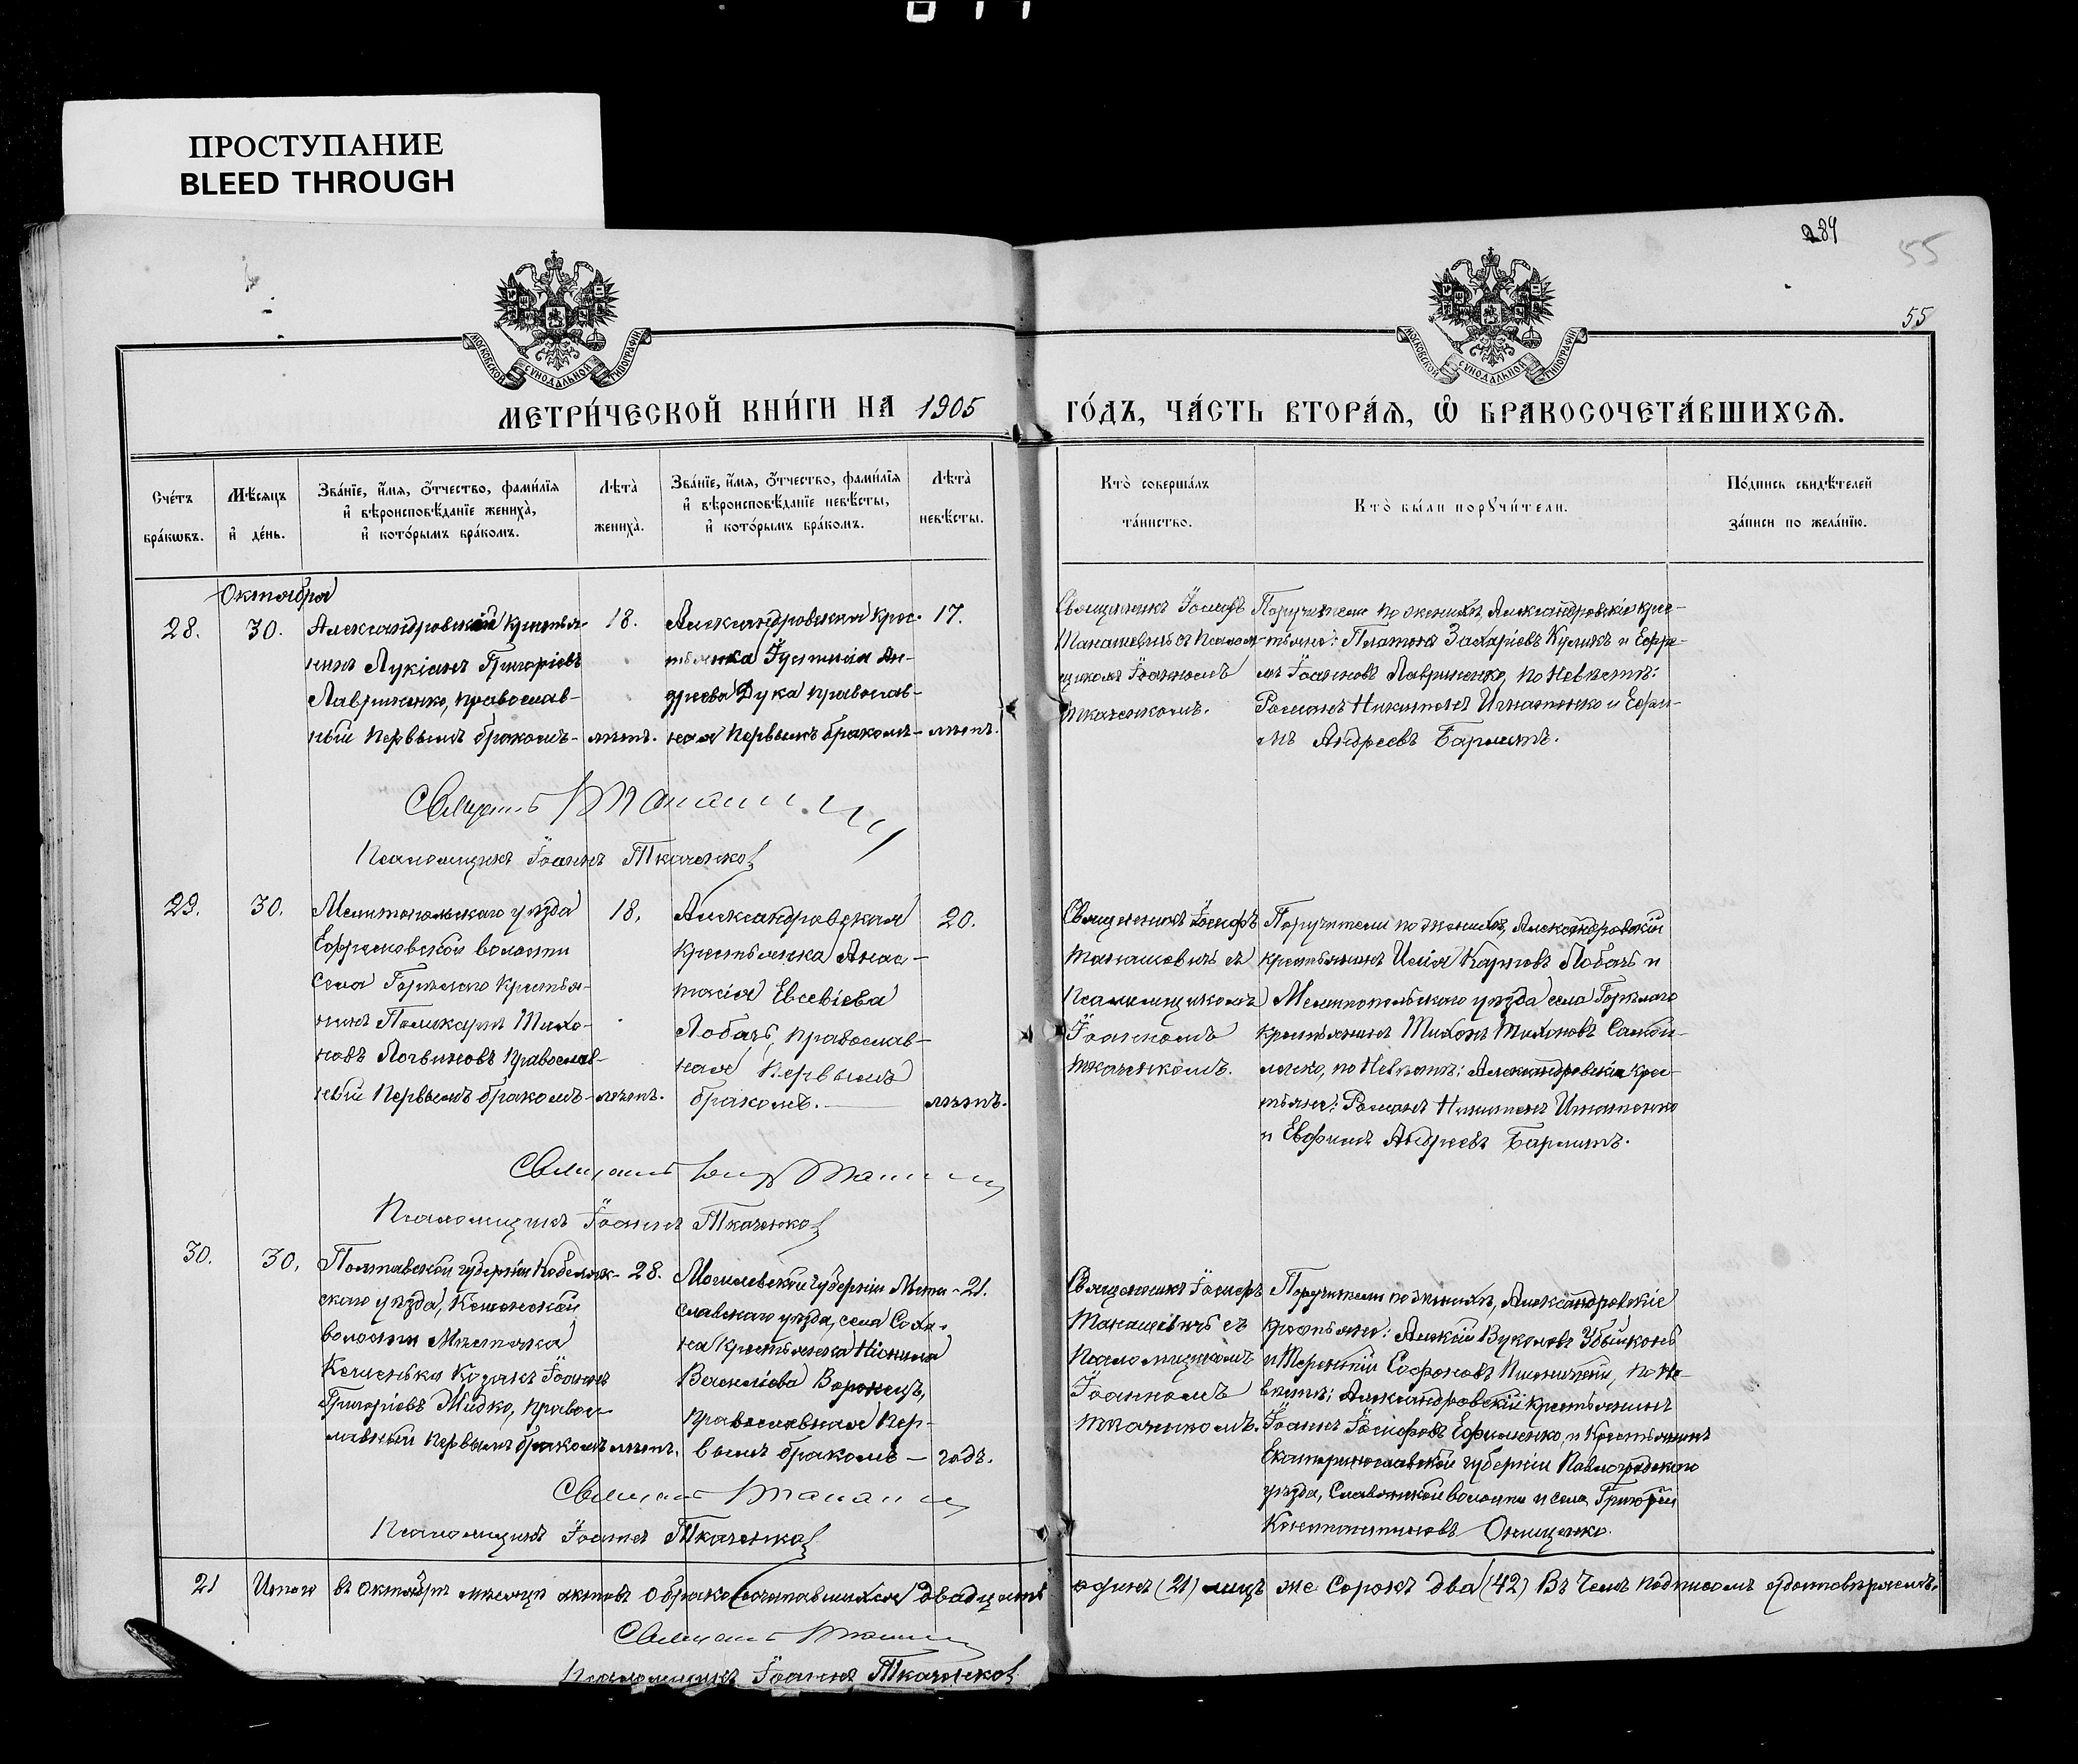 ПРОСТУПАНИЕ
BLEED THROUGH
284
55
55
МОСКОВСКОЙ СѴНОДАЛЬНОЙ ТИПОГРАФІИ
МОСКОВСКОЙ СѴНОДАЛЬНОЙ ТИПОГРАФІИ
МЕТРИ́ЧЕСКОЙ КНИ́ГИ НА 1905 ГО́ДЪ, ЧА́СТЬ ВТОРА́Я, Ѡ҆ БРАКОСОЧЕТА́ВШИХСѦ.
Сче́тъ
бра́кѡвъ.
Мѣ́сѧцъ
и҆ де́нь.
Зва́нїе, и҆́мѧ, ѻ҆́тчество, фами́лїѧ
и҆ вѣроисповѣ́данїе жениха̀,
и҆ кото́рымъ бра́комъ.
Лѣ́та
жениха̀.
Зва́нїе, и҆́мѧ, ѻ҆́тчество, фами́лїѧ
и҆ вѣроисповѣ́данїе невѣ́сты,
и҆ кото́рымъ бра́комъ.
Лѣ́та
невѣ́сты.
Кто̀ соверша́лъ
та́инство.
Кто̀ бы́ли порꙋчи́тели.
По́дпись свидѣ́телей
за́писи по жела́нїю.
Октября
28.
30.
Александровскій крестья-
нинъ Лукіанъ Григоріевъ
Лавриненко, православ-
ный первымъ бракомъ-
18.
лѣтъ.
Александровская крес-
тьянка Іустинія Ан-
дреева Дука православ-
ная первымъ бракомъ-
17.
лѣтъ.
Священникъ Іосифъ
Манашевичъ съ Псалом-
щикомъ Іоанномъ
Ткаченкомъ.
Поручители по женихѣ, Александровскіе крес-
тьяне: Платонъ Захаріевъ Куликъ и Ефре-
мъ Іоанновъ Лавриненко, по невѣстѣ:
Романъ Никитинъ Игнатенко и Ефи-
мъ Андреевъ Бармитъ.
Псаломщикъ Іоаннъ Ткаченко
29.
30.
Мелитопольскаго уѣзда
Ефремовской волости
села Горѣлаго крестья-
нинъ Поликарпъ Тихо-
новъ Логвиновъ православ-
ный первымъ бракомъ-
18.
лѣтъ.
Александровская
крестьянка Анас-
тасія Евсевіева
Лобачъ, православ-
ная первымъ
бракомъ.
20.
лѣтъ.
Священникъ Іосифъ
Манашевичъ съ
Псаломщикомъ
Іоанномъ
Ткаченкомъ.
Поручители по женихѣ, Александровскій
крестьянинъ Исаія Карповъ Лобачъ и
Мелитопольскаго уѣзда села Горѣлаго
крестьянинъ Тихонъ Тихоновъ Самой-
ленко, по невѣстѣ: Александровскіе крес-
тьяне: Романъ Никитинъ Игнатенко
и Евфимъ Андреевъ Бармитъ.
Псаломщикъ Іоаннъ Ткаченко
30.
30.
Полтавской губерніи Кобеляк-
скаго уѣзда, Кишенской
волости Мѣстечка
Кешеньки Козакъ Іоаннъ
Григоріевъ Жидко, правос-
лавный первымъ бракомъ
28.
лѣтъ.
Могилевской губерніи Мсти-
славскаго уѣзда, села
крестьянка
Василіева Воронецъ,
православная пер-
вымъ бракомъ —
21.
годъ.
Священникъ Іосифъ
Манашевичъ съ
Псаломщикомъ
Іоанномъ
Ткаченкомъ.
Поручители по женихѣ, Александровскіе
крестьяне: Алексій Вуколовъ
и Терентій Софоновъ по не-
вѣстѣ: Александровскій крестьянинъ
Іоаннъ Іосифовъ Ефименко, и крестьянинъ
Екатеринославской губерніи Павлоградскаго
уѣзда, Славянской волости и села, Григорій
Константиновъ Онищенко.
Псаломщикъ Іоаннъ Ткаченко
21 Итого въ октябрѣ мѣсяцѣ актовъ о бракосочетавшихся двадцать одинъ (21) лицъ же сорокъ два (42) Въ чемъ подписомъ удостовѣряемъ.
Псаломщикъ Іоаннъ Ткаченко